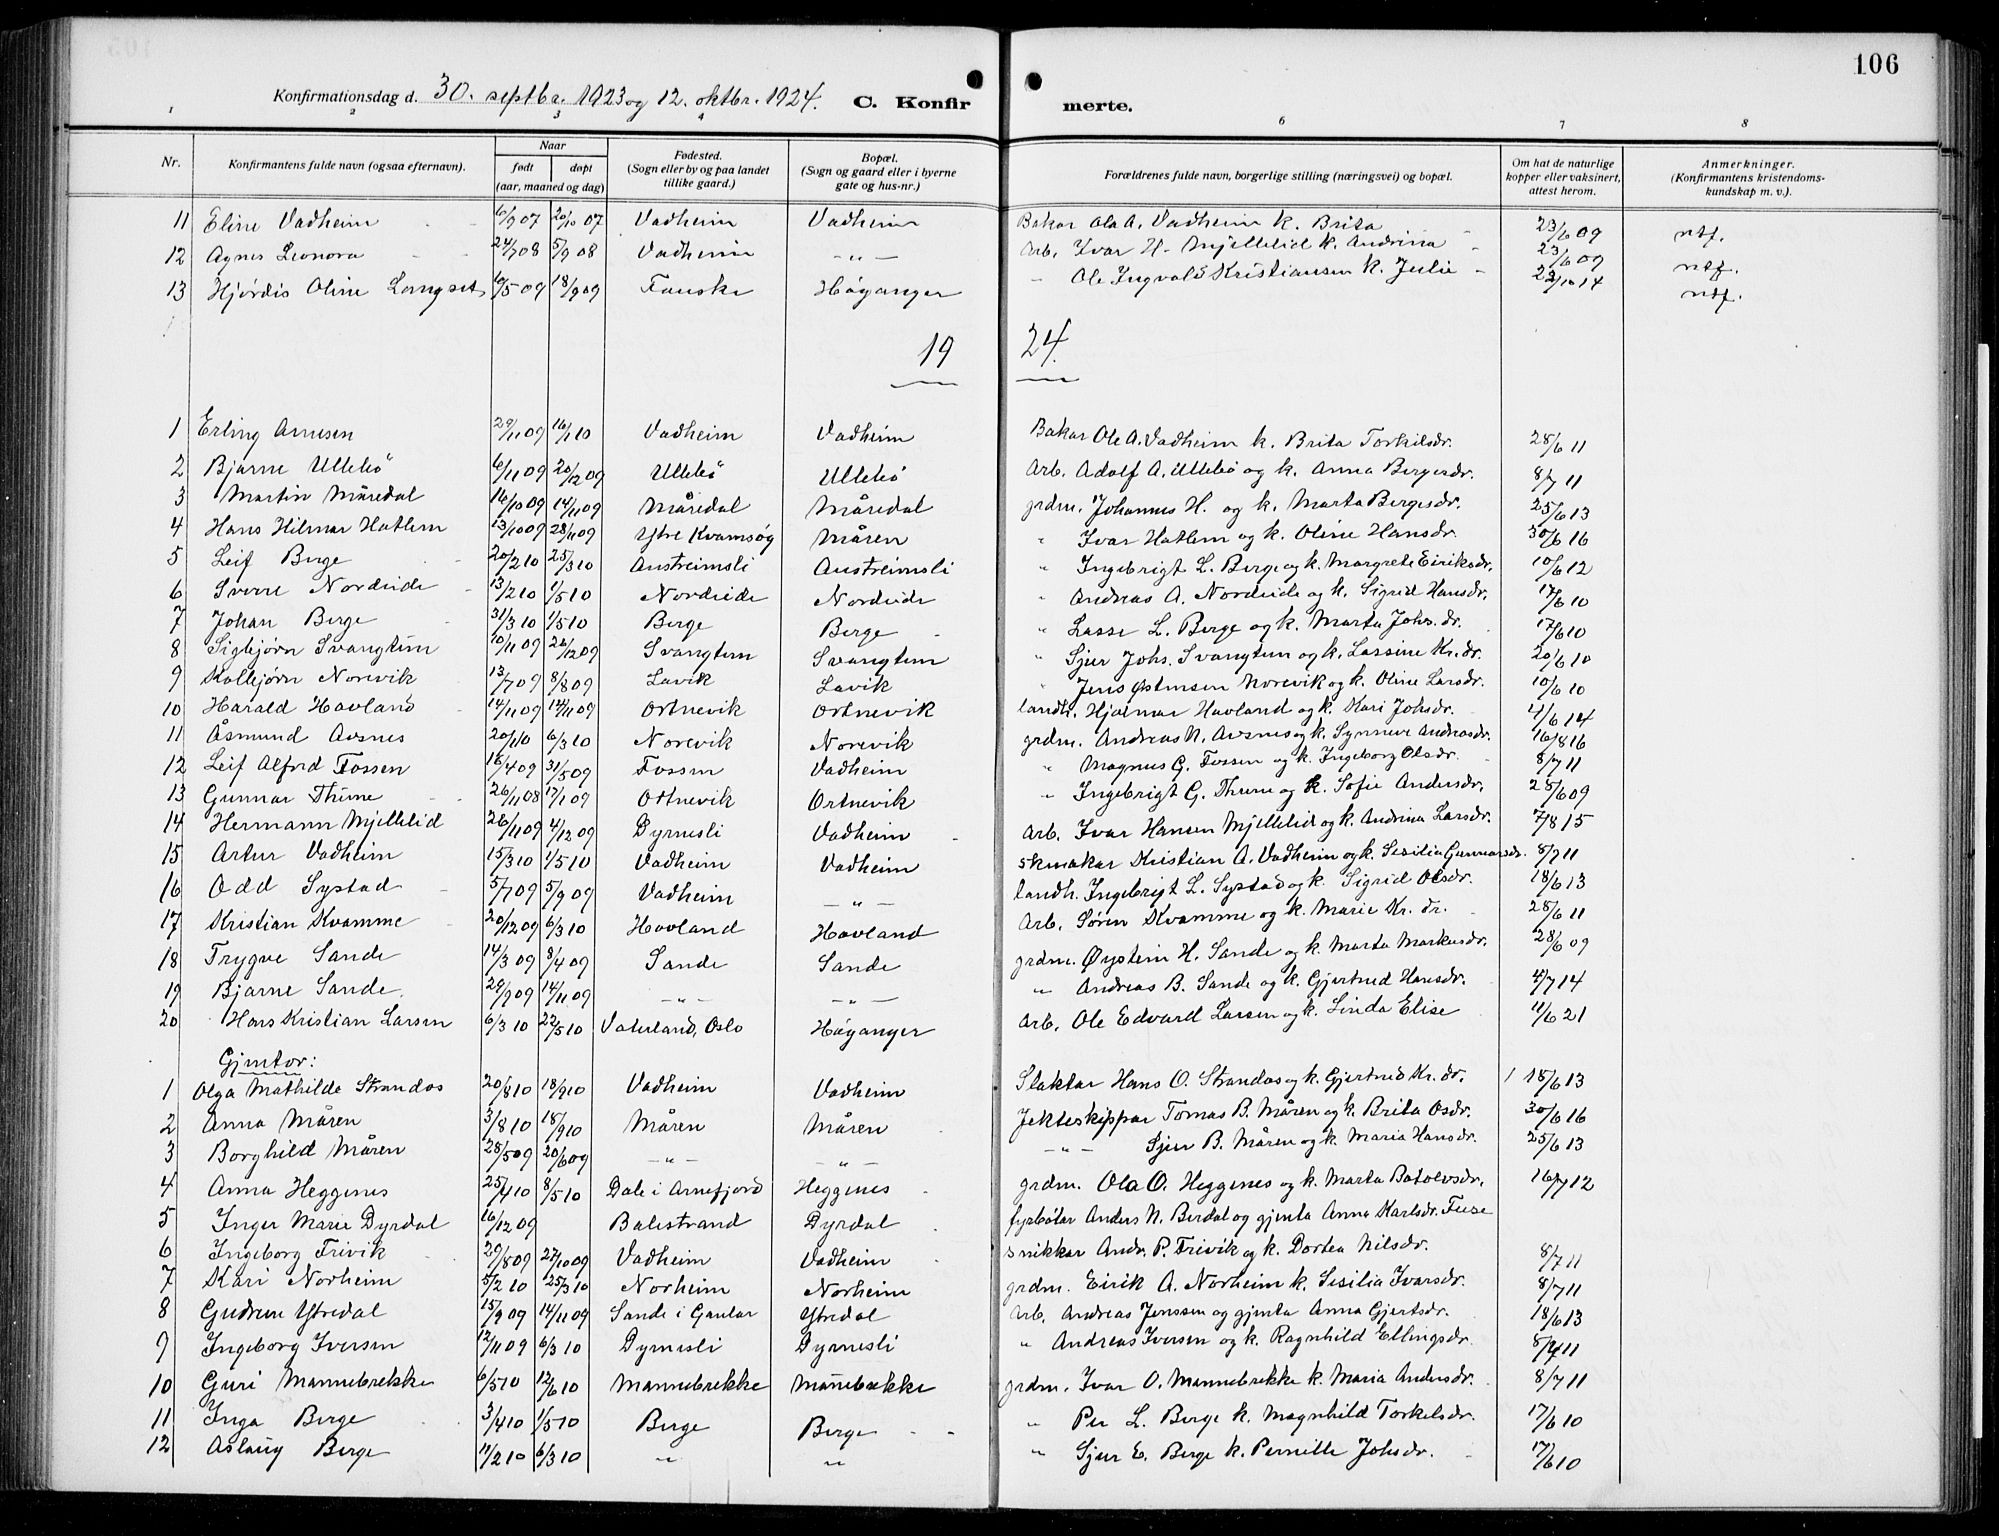 106
Konfirmationsdag d. 30. septbr. 1923 og 12. oktbr. 1924. C. Konfirmerte.
1 2 3 4 6 7 8
Nr. Konfirmantens fulde navn (ogsaa efternavn). Naar født døpt (aar, maaned og dag) Fødested. (Sogn eller by og paa landet tillike gaard.) Bopæl. (Sogn og gaard eller i byerne gate og hus-nr.) Forældrenes fulde navn, borgerlige stilling (næringsvei) og bopæl. Om hat de naturlige kopper eller vaksinert, attest herom. Anmerkninger. (Konfirmantens kristendomskundskap m. v.).
11 Eline Vadheim 6/9 07 20/10 07 Vadheim Vadheim Bakar Ola A. Vadheim k. Brita 23/6 09 ntf.
12 Agnes Leonora 24/7 08 5/9 08 Vadheim - " - Arb. Ivar H. Mjellelid k. Andrina 23/6 09 ntf.
13 Hjørdis Oline Langset 10/5 09 18/9 09 Fauske Høyanger - Ole Ingvald Kristiansen k. Julie 22/10 14 ntf.
19 24.
1 Erling Arnesen 29/11 09 16/1 10 Vadheim Vadheim Bakar Ole A. Vadheim k. Brita Torkilsdr. 28/6 11
2 Bjarne Ullebø 6/11 09 20/12 09 Ullebø Ullebø Arb. Adolf A. Ullebø og k. Anna Bergesdr. 8/7 11
3 Martin Måredal 16/10 09 14/11 09 Måredal Måredal grdm. Johannes H. og k. Marta Bergesdr. 25/6 13
4 Hans Hilmar Hatlem 13/10 09 28/11 09 Ytre Kvamsøy Måren " Ivar Hatlem og k. Oline Hansdr. 30/6 16
5 Leif Berge 20/2 10 25/3 10 Austreimsli Austreimsli " Ingebrigt L. Berge og k. Margrete Eiriksdr. 10/6 12
6 Sverre Nordeide 13/2 10 1/5 10 Nordeide Nordeide " Andreas A. Nordeide og k. Sigrid Hansdr. 17/6 10
7 Johan Berge 31/3 10 1/5 10 Berge Berge " Lasse L. Berge og k. Marta Johs. dr. 17/6 10
8 Sigbjørn Svangtun 10/11 09 26/12 09 Svangtun Svangtun " Sjur Johs. Svangtun og k. Lassine Kr. dr. 20/6 10
9 Kolbjørn Norevik 13/7 09 8/8 09 Lavik Lavik " Jens Østensen Norevik og k. Oline Larsdr. 10/6 10
10 Harald Hovland 14/11 09 14/11 09 Ortnevik Ortnevik landh. Hjalmar Hovland og k. Kari Johsdr. 4/6 14
11 Åsmund Avsnes 20/1 10 6/3 10 Norevik Norevik grdm. Andreas N. Avsnes og k. Synneve Andreasdr. 16/8 16
12 Leif Alfred Fossen 16/4 09 31/5 09 Fossen Vadheim " Magnus G. Fossen og k. Ingeborg Olsdr. 8/7 11
13 Gunnar Thune 26/11 08 17/1 09 Ortnevik Ortnevik " Ingebrigt G. Thune og k. Sofie Andersdr. 25/6 09
14 Hermann Mjellelid 26/11 09 4/12 09 Dyrnesli Vadheim Arb. Ivar Hansen Mjellelid og k. Andrina Larsdr. 7/8 15
15 Artur Vadheim 15/3 10 1/5 10 Vadheim Vadheim skmakar Kristian A. Vadheim og k. Sesilia Gunnarsdr. 8/7 11
16 Odd Systad 5/7 09 5/9 09 Vadheim - " - landh. Ingebrigt L. Systad og k. Sigrid Olsdr. 18/6 13
17 Kristian Kvamme 20/12 09 6/3 10 Hovland Hovland Arb. Søren Kvamme og k. Marie Kr. dr. 28/6 11
18 Trygve Sande 14/3 09 8/4 09 Sande Sande grdm. Øystein H. Sande og k. Marta Markusdr. 28/6 09
19 Bjarne Sande 29/9 09 14/11 09 - " - - " - " Andreas B. Sande og k. Gjertrud Hansdr. 4/7 14
20 Hans Kristian Larsen 6/3 10 22/5 10 Vaterland, Oslo Høyanger Arb. Ole Edvard Larsen og k. Linda Elise 11/6 21
Gjentor:
1 Olga Mathilde Strandos 20/8 10 18/9 10 Vadheim Vadheim Slaktar Hans O. Strandos og k. Gjertrud Kr. dr. 18/6 13
2 Anna Måren 3/8 10 18/9 10 Måren Måren Jekteskippar Tomas B. Måren og k. Brita Osdr. 30/6 16
3 Borghild Måren 28/5 09 20/6 09 - " - - " - - " - Sjur B. Måren og k. Maria Hansdr. 25/6 13
4 Anna Heggenes 25/4 10 8/5 10 Dale i Arnefjord Heggenes grdm. Ola O. Heggenes og k. Marta Botolvsdr. 16/7 12
5 Inger Marie Dyrdal 16/12 09 Balestrand Dyrdal fyrbøtar Anders N. Birdal og gjenta Anna Karlsdr. Fuse
6 Ingeborg Trivik 29/8 09 27/10 09 Vadheim Vadheim snikkar Andr. P. Trivik og k. Dortea Nilsdr. 8/7 11
7 Kari Norheim 5/2 10 25/3 10 Norheim Norheim grdm. Eirik A. Norheim k. Sesilia Ivarsdr. 8/7 11
8 Gudrun Ytredal 15/9 09 14/11 09 Sande i Gaular Ytredal Arb. Andreas Jenssen og gjenta Anna Gjertsdr. 18/6 13
9 Ingeborg Iversen 12/11 09 6/3 10 Dyrnesli Dyrnesli " Andreas Iversen og k. Ragnhild Ellingsdr. 8/7 11
10 Guri Mannebrekke 6/5 10 12/6 10 Mannebrekke Manebrekke grdm. Ivar O. Mannebrekke k. Maria Andersdr. 8/7 11
11 Inga Berge 3/4 10 1/5 10 Berge Berge " Per L. Berge k. Magnhild Torkelsdr. 17/6 10
12 Aslaug Berge 17/2 10 6/3 10 " " " Sjur E. Berge k. Pernille Johsdr. 17/6 10